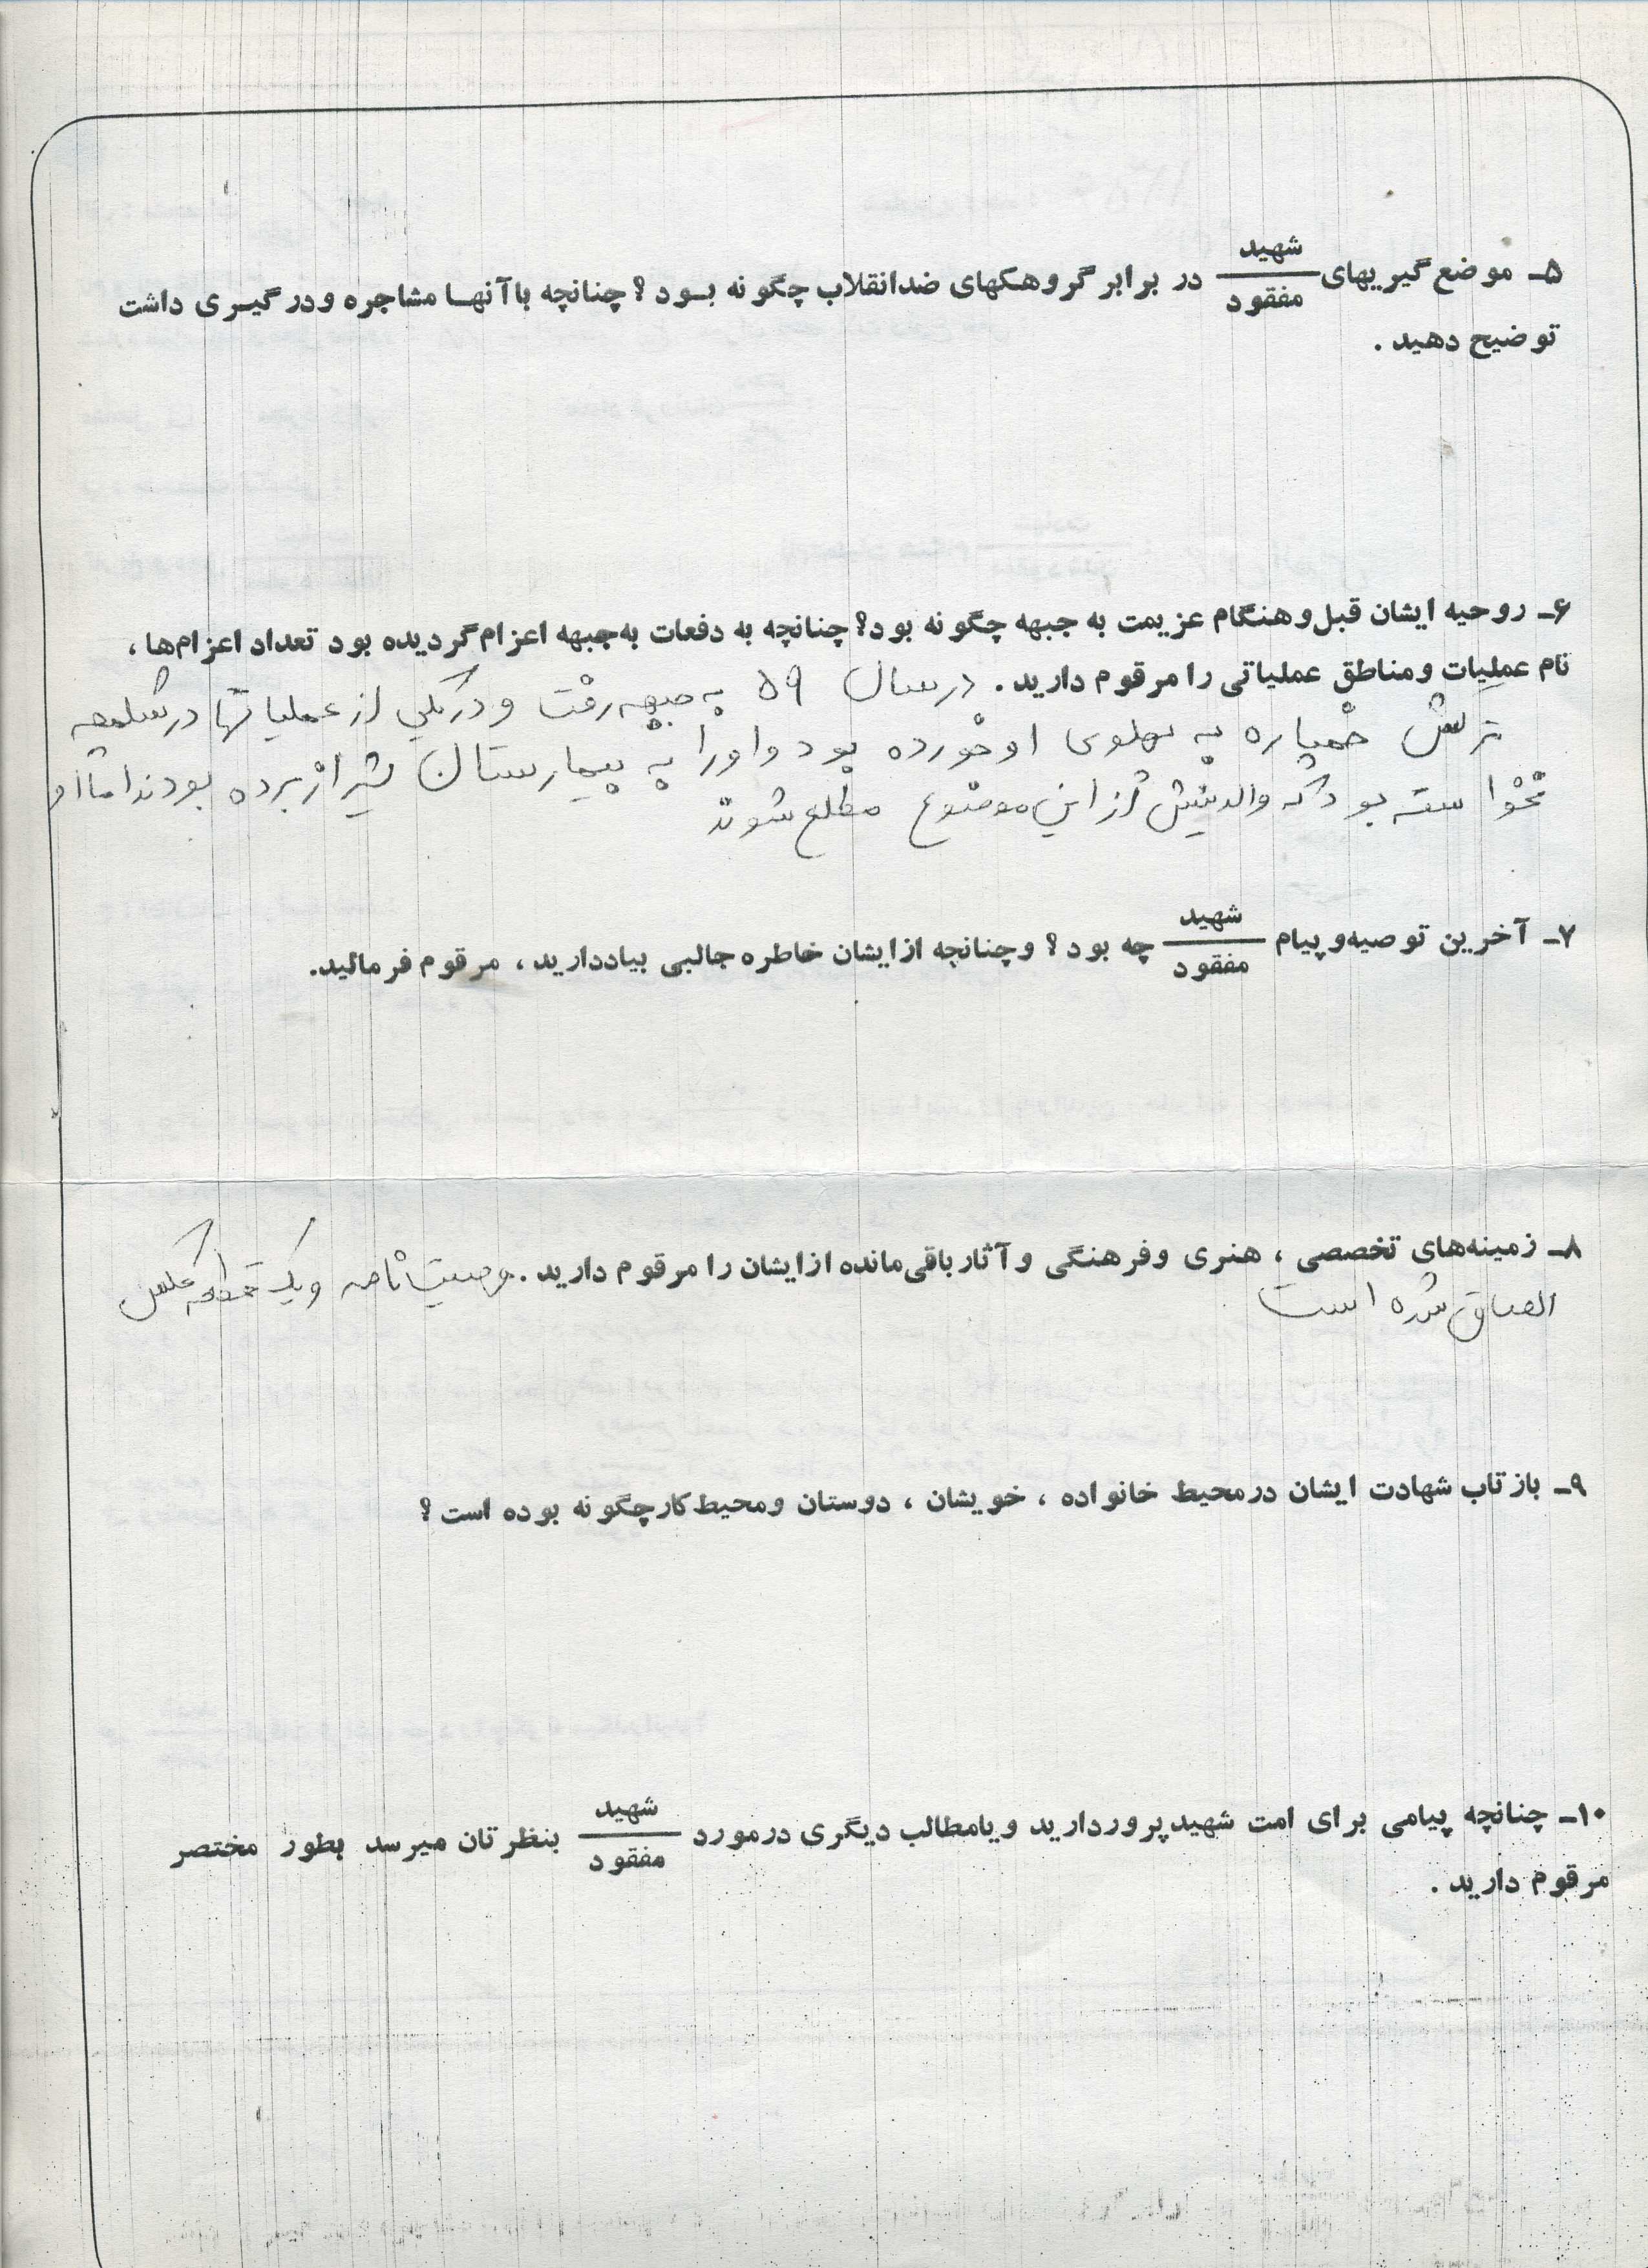 ۵ـ موضع گیریهای شهید / مفقود در برابر گروهکهای ضدانقلاب چگونه بود ؟ چنانچه با آنها مشاجره و درگیری داشت
توضیح دهید .
۶ـ روحیه ایشان قبل و هنگام عزیمت به جبهه چگونه بود؟ چنانچه به دفعات به جبهه اعزام گردیده بود تعداد اعزام‌ها ،
نام عملیات و مناطق عملیاتی را مرقوم دارید . در سال ۵۹ به جبهه رفت و در یکی از عملیاتها در شلمچه
ترکش خمپاره به پهلوی او خورده بود و او را به بیمارستان شیراز برده بودند اما او
نخواسته بود که والدینش از این موضوع مطلع شوند
۷ـ آخرین توصیه و پیام شهید / مفقود چه بود ؟ و چنانچه از ایشان خاطره جالبی بیاد دارید ، مرقوم فرمائید.
۸ـ زمینه‌های تخصصی ، هنری و فرهنگی و آثار باقی‌مانده از ایشان را مرقوم دارید . وصیت نامه و یک قطعه عکس
الصاق شده است
۹ـ بازتاب شهادت ایشان در محیط خانواده ، خویشان ، دوستان و محیط کار چگونه بوده است ؟
۱۰ـ چنانچه پیامی برای امت شهید پرور دارید و یا مطالب دیگری در مورد شهید / مفقود بنظرتان میرسد بطور مختصر
مرقوم دارید .